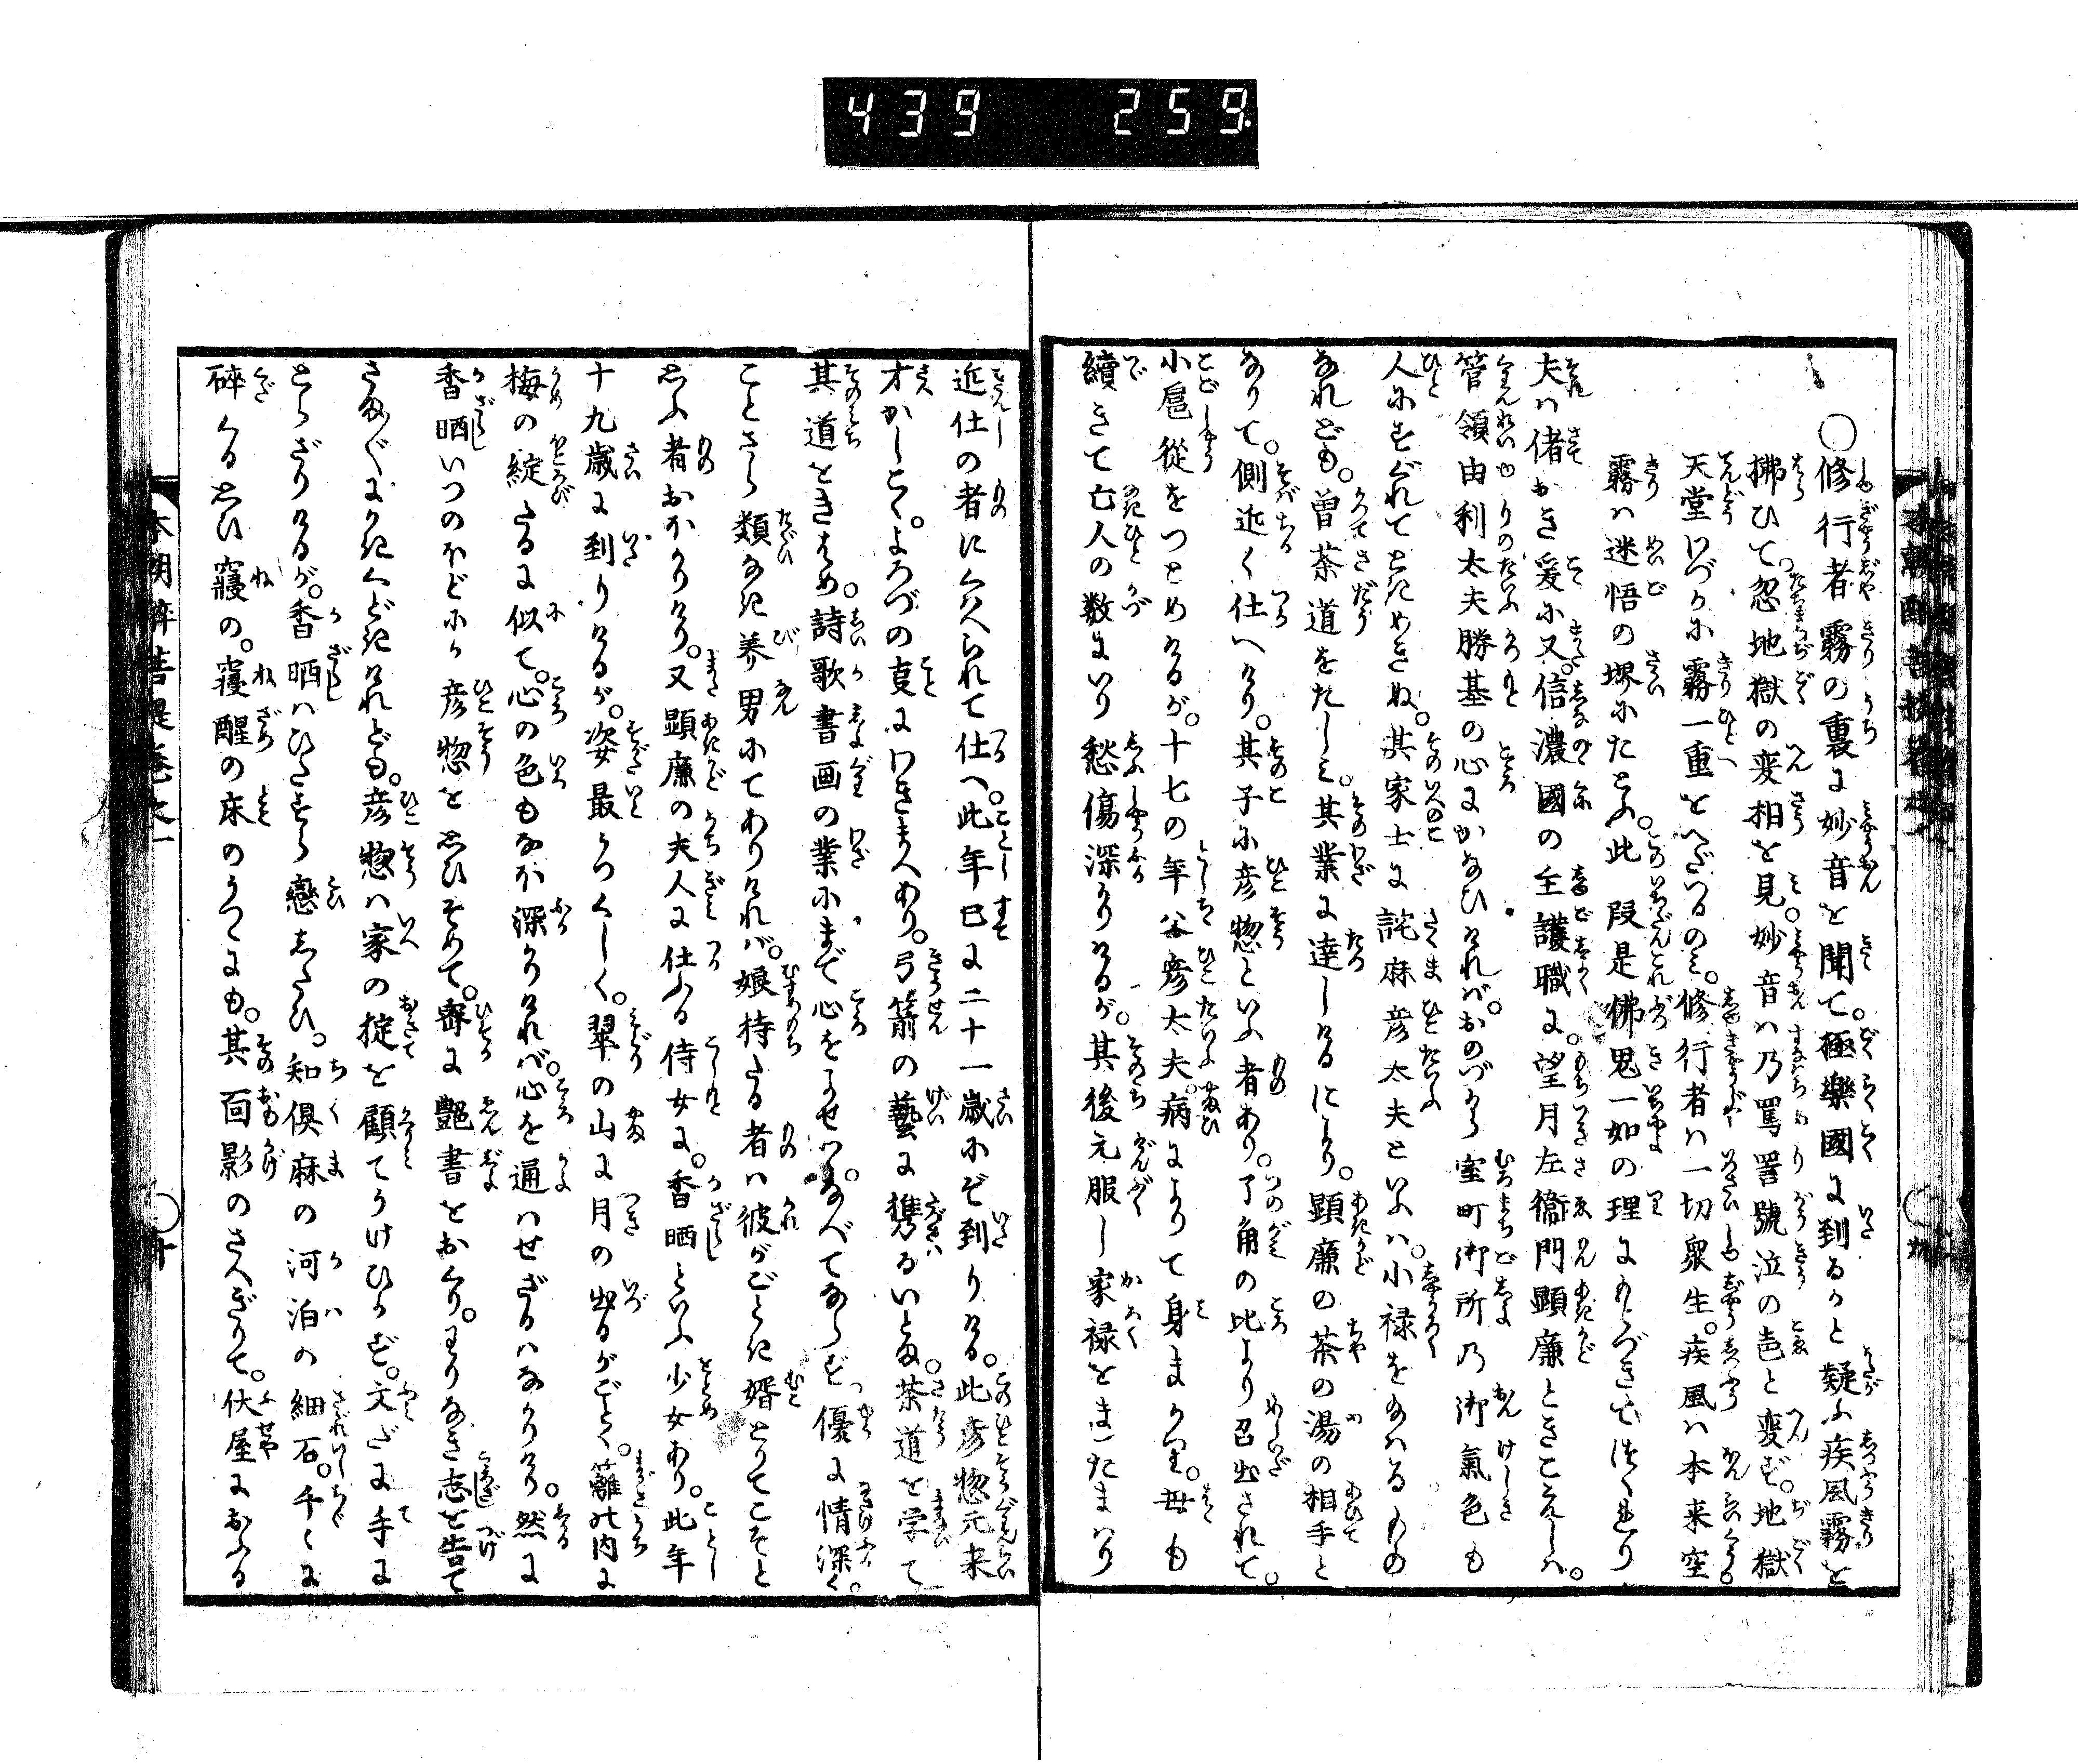 439 259
○修行者霧の裏に妙音を聞て。極樂國に到るかと疑ふ疾風霧を
拂ひて。忽地獄の変相を見。妙音ハ乃罵詈號泣の声と変ず。地獄
天堂わづかに霧一重をへだつるのミ。修行者ハ一切衆生。疾風ハ本来空
霧ハ迷悟の堺にたとふ。此段是佛鬼一如の理にもとづきてつくれり
夫ハ偖おき爰に又。信濃國の主護職に。望月左衞門顕廉ときこえしハ。
管領由利太夫勝基の心にかなひければ。おのづから室町御所乃御氣色も
人にすぐれてときめきぬ。其家士に詫麻彦太夫といふハ。小禄をあハるもの
なれども。曽茶道をたしミ。其業に達しけるにより。顕廉の茶の湯の相手と
なりて。側近く仕へけり。其子に彦惣といふ者あり。丫角の比より召出されて。
小扈從をつとめけるが。十七の年父彦太夫。病によりて身まかり。母も
續きて亡人の数にいり愁傷深かりけるが。其後元服し家禄をまたまハり
近仕の者にくハへられて仕へ。此年已に二十一歳にぞ到りける。此彦惣元来
才かしこく。よろづの事にわきまへあり。弓箭の藝に携るいとま。茶道を学て
其道をきはめ。詩歌書画の業にまで心をよせ。なべてならず優に情深く。
ことさら類なき美男にてありければ。娘持たる者ハ彼がごとき婿とりてこそと
思ふ者おほかりけり。又顕廉の夫人に仕ふる侍女に。香晒といふ少女あり。此年
十九歳に到りけるが。姿最うつくしく。翠の山に月の出るがごとく。籬の内に
梅の綻たるに似て。心の色もなほ深かりければ。心を通ハせざるハなかりけり。然に
香晒いつのほどにか彦惣を思ひそめて。密に艶書をおくり。わりなき志を告て
さま〴〵にかきくどきけれども。彦惣ハ家の掟を顧てうけひかず。文だに手に
とらざりけるが。香晒ハひたすら戀したひ。知倶麻の河泊の細石。千々に
碎くる思ひ寢の。寢醒の床のうつゝにも。其面影のさへぎりて。伏屋におふる
本朝醉菩提巻之一
○十